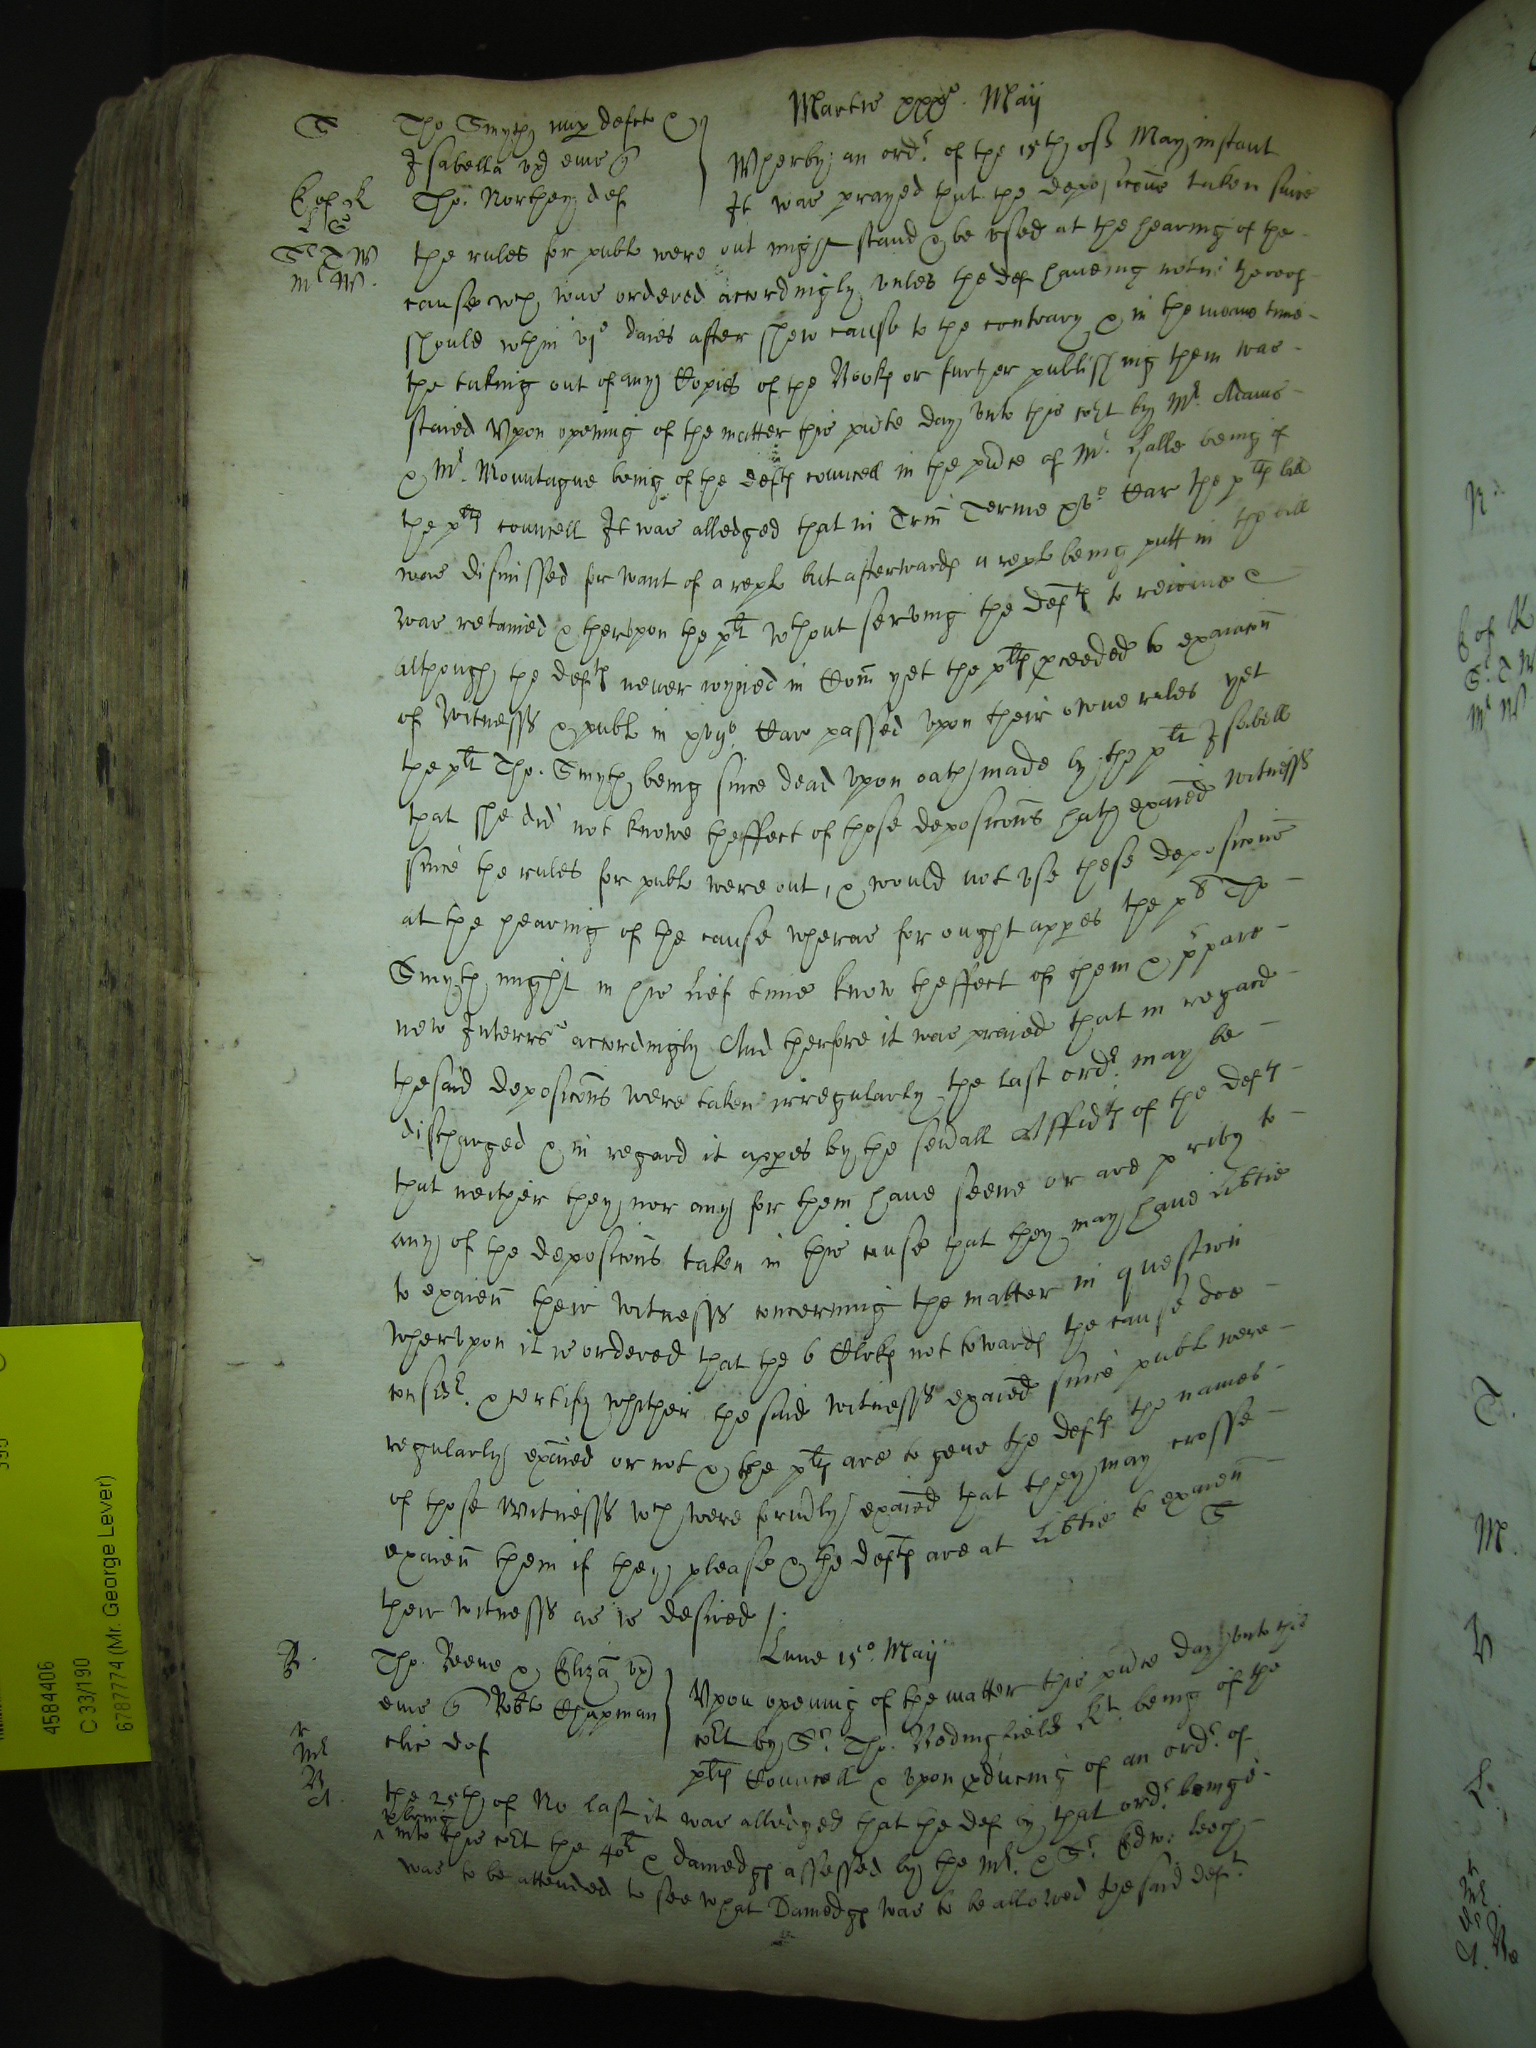 Martis xxx° Maij
S Tho Smyth nup defcto &
Isabella vx eius q
Tho: Northey def
Wherby an ordr of the 15th of May instant
It was prayed that the deposicons taken since
the rules for publ were out might stand & be vsed at the hearing of the
cause wch was ordered accordingly vnles the def haueing notice thereof
should wthin vj° daies after shew cause to the contrary & in the meane time
the taking out of any Copies of the Books or further publishing them was
staied Vpon opening of the matter this pnte day vnto this cort by Mr. Adams
& Mr. Mountague being of the defts councell in the pnce of Mr. Halle being of
the plts councell It was alledged that in Trin Terme xv° Car the plts bill
was dismissed for want of a repl but afterwards a repl being putt in the bill
was retained & thervpon the plt wthout serving the defts to reioine
although the defts neuer ioyned in Com yet the plts pceeded to exaiacon
of Witnesss & publ in xvij° Car passed vpon their owne rules yet
the plt Tho. Smyth being since dead vpon oath made by the plt Isabell
that she did not knowe theffect of those deposicons hath exaied witnesss
since the rules for publ were out, & would not vse these deposicons
at the hearing of the cause wheras for ought appes the pd Tho
Smyth might in his lief time know theffect of them & ppare
new Interrs accordingly And therfore it was praied that in regard
the said deposicons were taken irregularly the last ordr may be
discharged & in regard it appes by the seuall Affidts of the defts
that neither they nor any for them haue seene or are priby to
any of the deposicons taken in this cause that they may haue libtie
to exaien their witnesss concerning the matter in question
whervpon it is ordered that the 6 Clrks not towards the cause doe
consdr. & certify whither the said witnesss exaied since publ were
regularly exaied or not & the plts are to geue the defts the names
of those Witnesss wch were formly exaied that they may crosse
exaien them if they please & the defts are at libtie to exaien
their witnesss as is desired /. S
Lune 15° Maij
R. Tho. Reeue & Eliza vx
eius q Robto Chapman
clic def
Vpon opening of the matter this pnte day vnto this
cort by Sr. Tho. Bedingfield Kt. being of the
plts Councell & vpon pducing of an ordr. of
the 25th of No last it was alledged that the def by that ordr. bringe
& being
^ into this cort the 40li & damedgs assessed by the Mr. & Sr. Edw: Leech
was to be attended to see what Damedgs was to be allowed the said deft.
4584406
C 33/190
6787774 (Mr. George Lever)